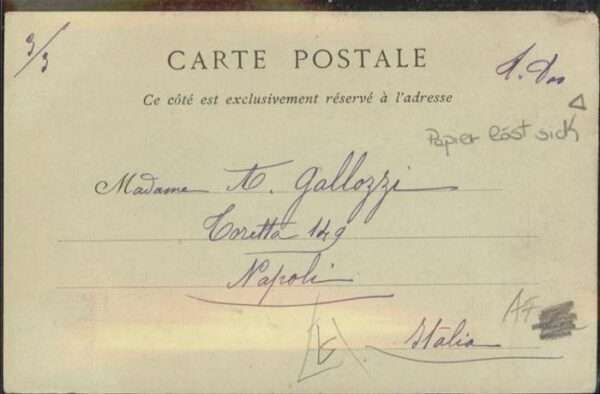 3/3
CARTE POSTALE
Ce côté est exclusivement réservé à l'adresse
Papier löst sich
Madame A. Gallozzi
Toretta 149
Napoli
Italia